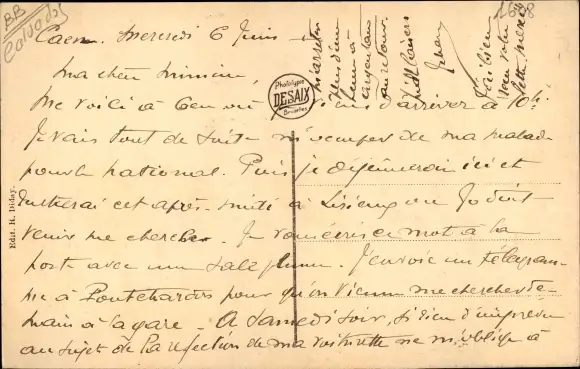 BB
Calvados
1658
Caen. Mercredi 6 Juin
Ma chère mimine,
Me voici à Caen où je viens d'arriver à 10h
Je vais tout de suite m'occuper de ma malade
pour le national. Puis je déjeunerai ici et
cet après-midi à Lisieux où Jo doit
venir me chercher. Je vous écris ce mot à la
poste avec une sale plume. J'envoie un télégram-
me à Pontchardon pour qu'on vienne me chercher de-
main à la gare. A samedi soir, si rien d'imprévu
au sujet de la réfection de ma voiturette ne m'oblige à
m'arrêter
une heure
à
Argentan
au retour.
Mille baisers
J'ai bien
reçu votre
lettre, merci
Phototypie
DESAIX
Bruxelles
Edit. R. Diday.